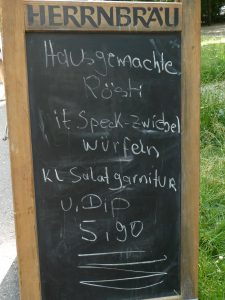 HERRNBRÄU
Hausgemachte
Rösti
it Speck-Zwiebel
würfeln
KL Salatgarnitur
u. Dip
5,90